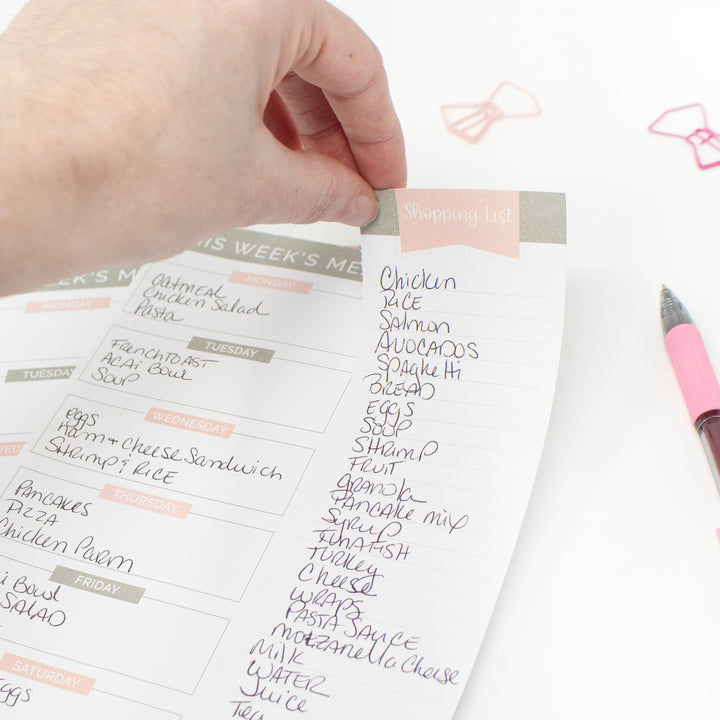 THIS WEEK'S ME
MONDAY
OATMEAL
Chicken Salad
Pasta
TUESDAY
French TOAST
ACAi Bowl
SOUP
WEDNESDAY
eggs
Ham + Cheese Sandwich
Shrimp & RICE
THURSDAY
PANCAKES
PIZZA
Chicken Parm
FRIDAY
i Bowl
SALAD
SATURDAY
eggs
EEK'S M
MONDAY
TUESDAY
WED
Shopping List
Chicken
RiCE
Salmon
AVOCADOS
SPAgheHi
BREAD
EGGS
SOUP
SHRimp
FRUIT
granola
PANCAKE mix
Syrup
TUNAFISH
TURKEY
Cheese
WRAPS
PASTA SAUCE
mozzarella Cheese
Milk
WATER
Juice